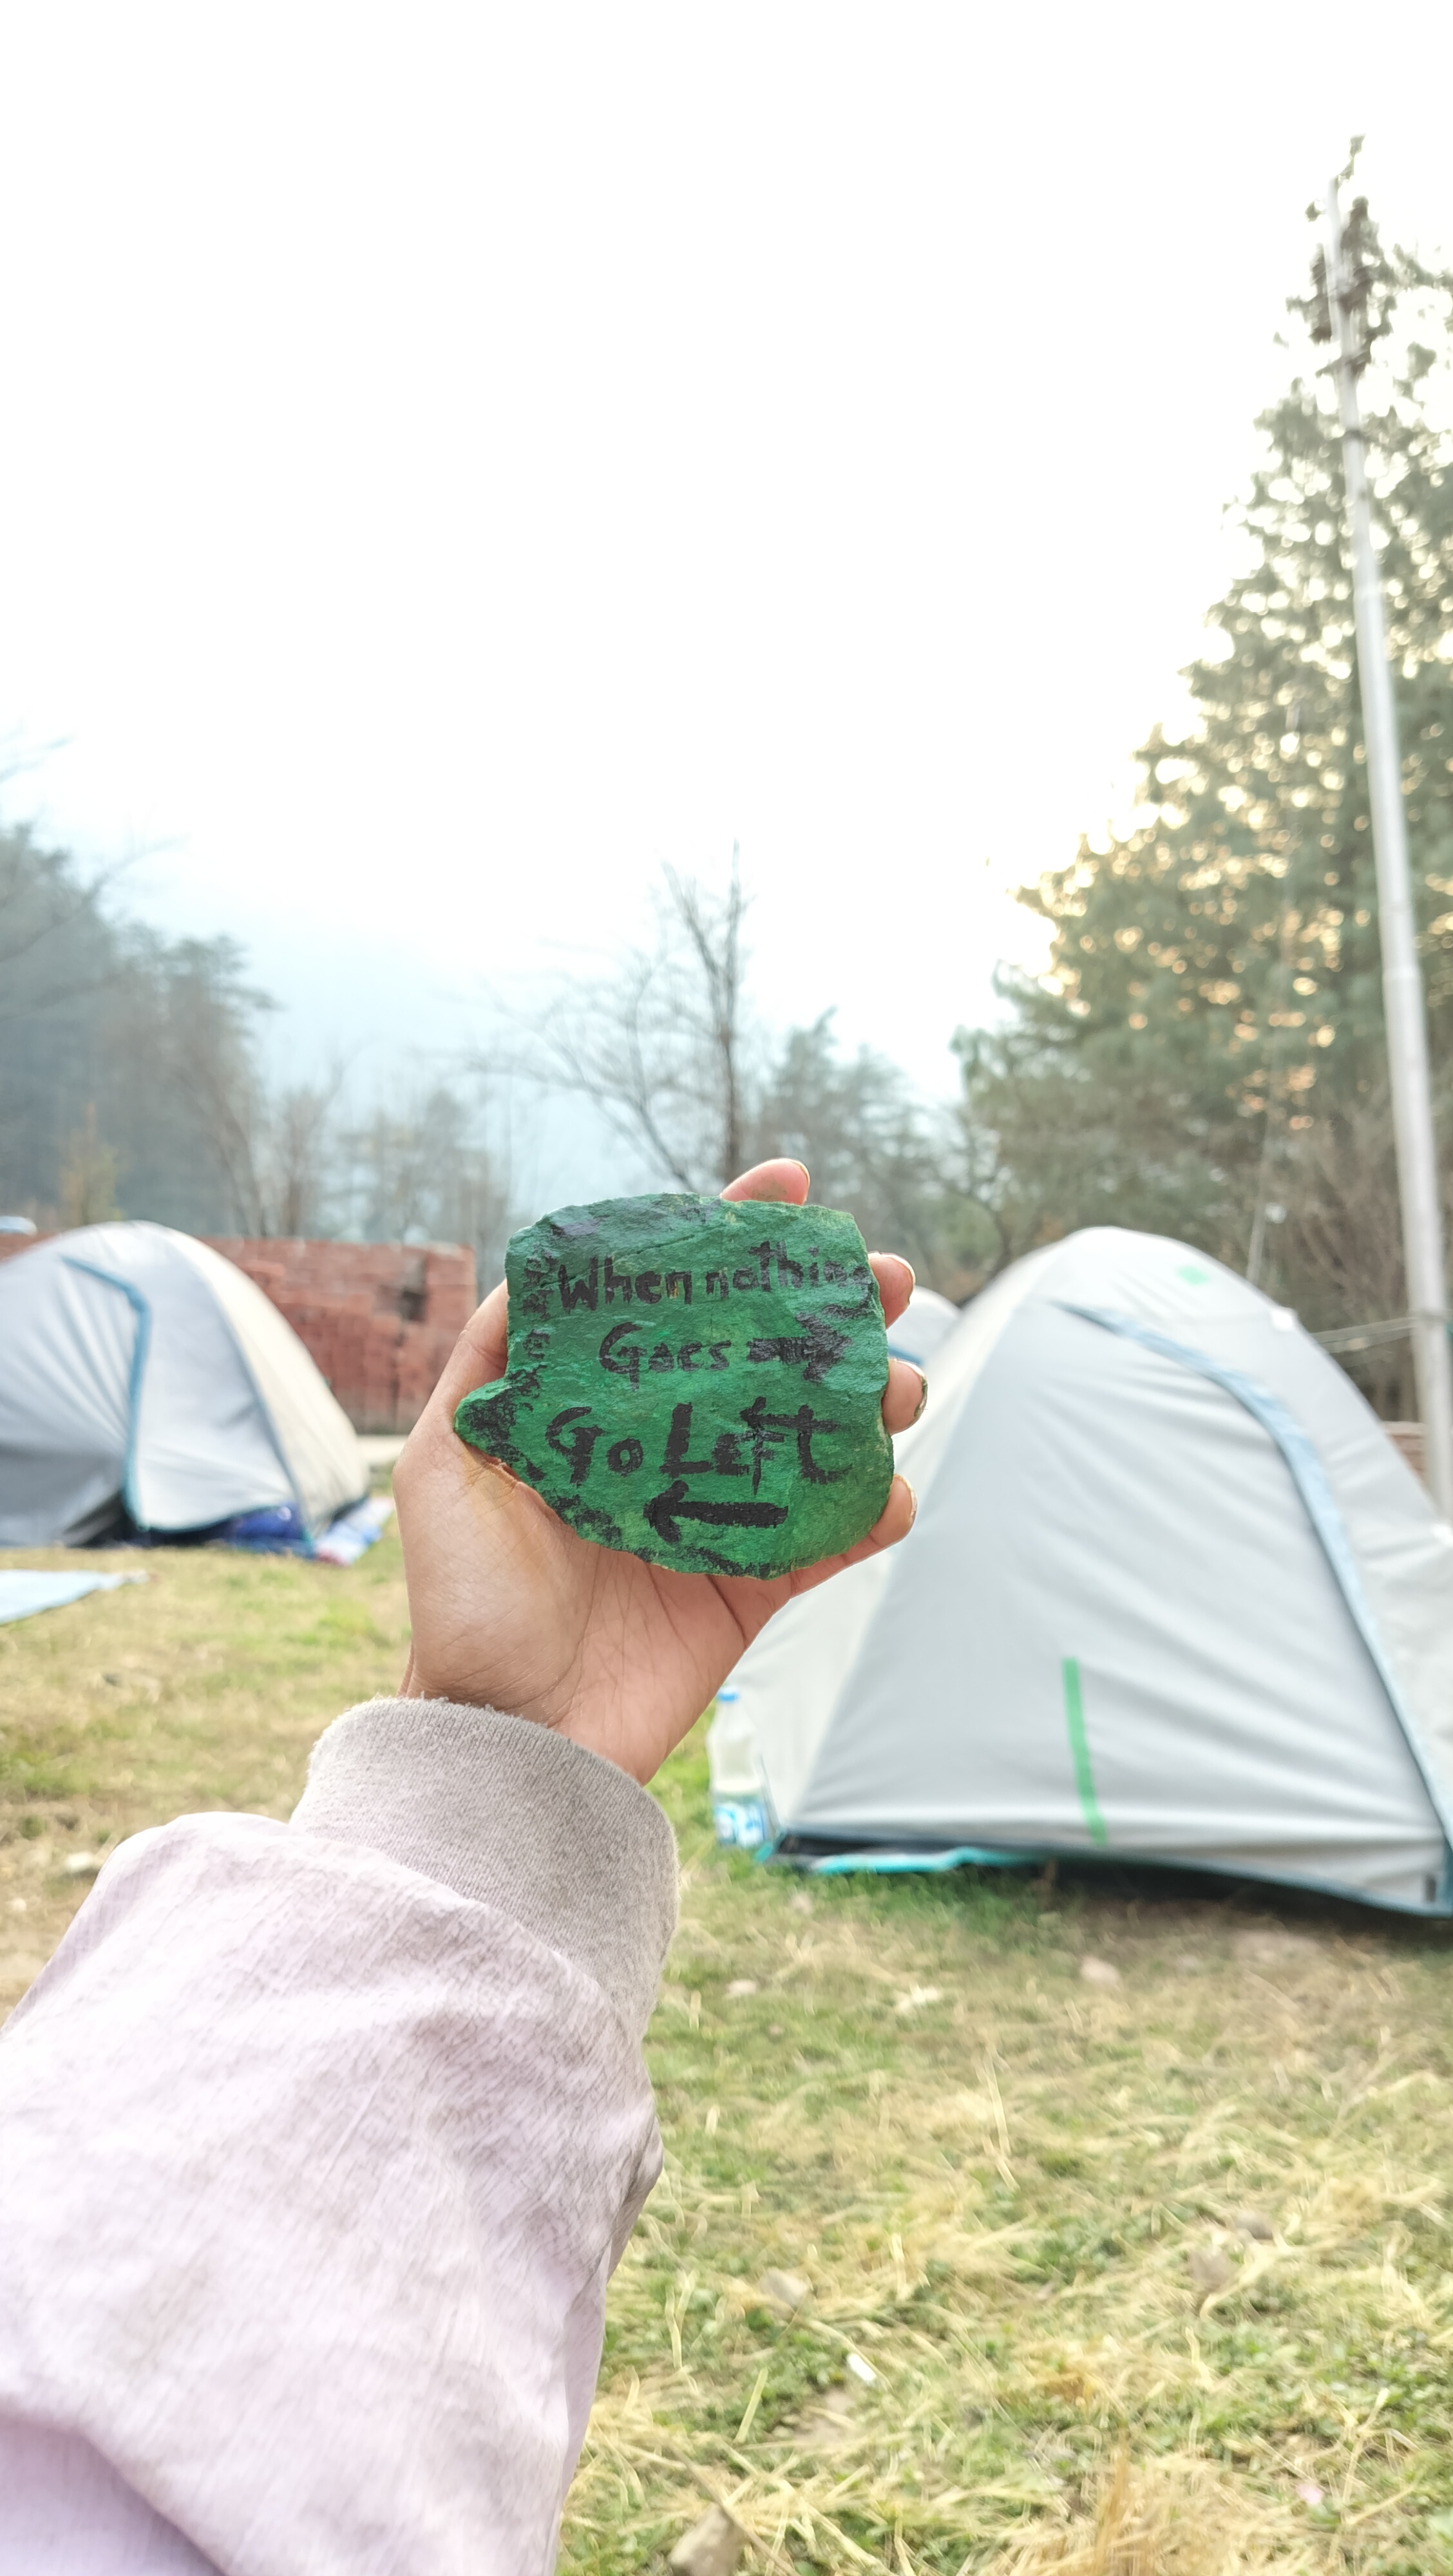 When nothing
Goes →
Go Left
←